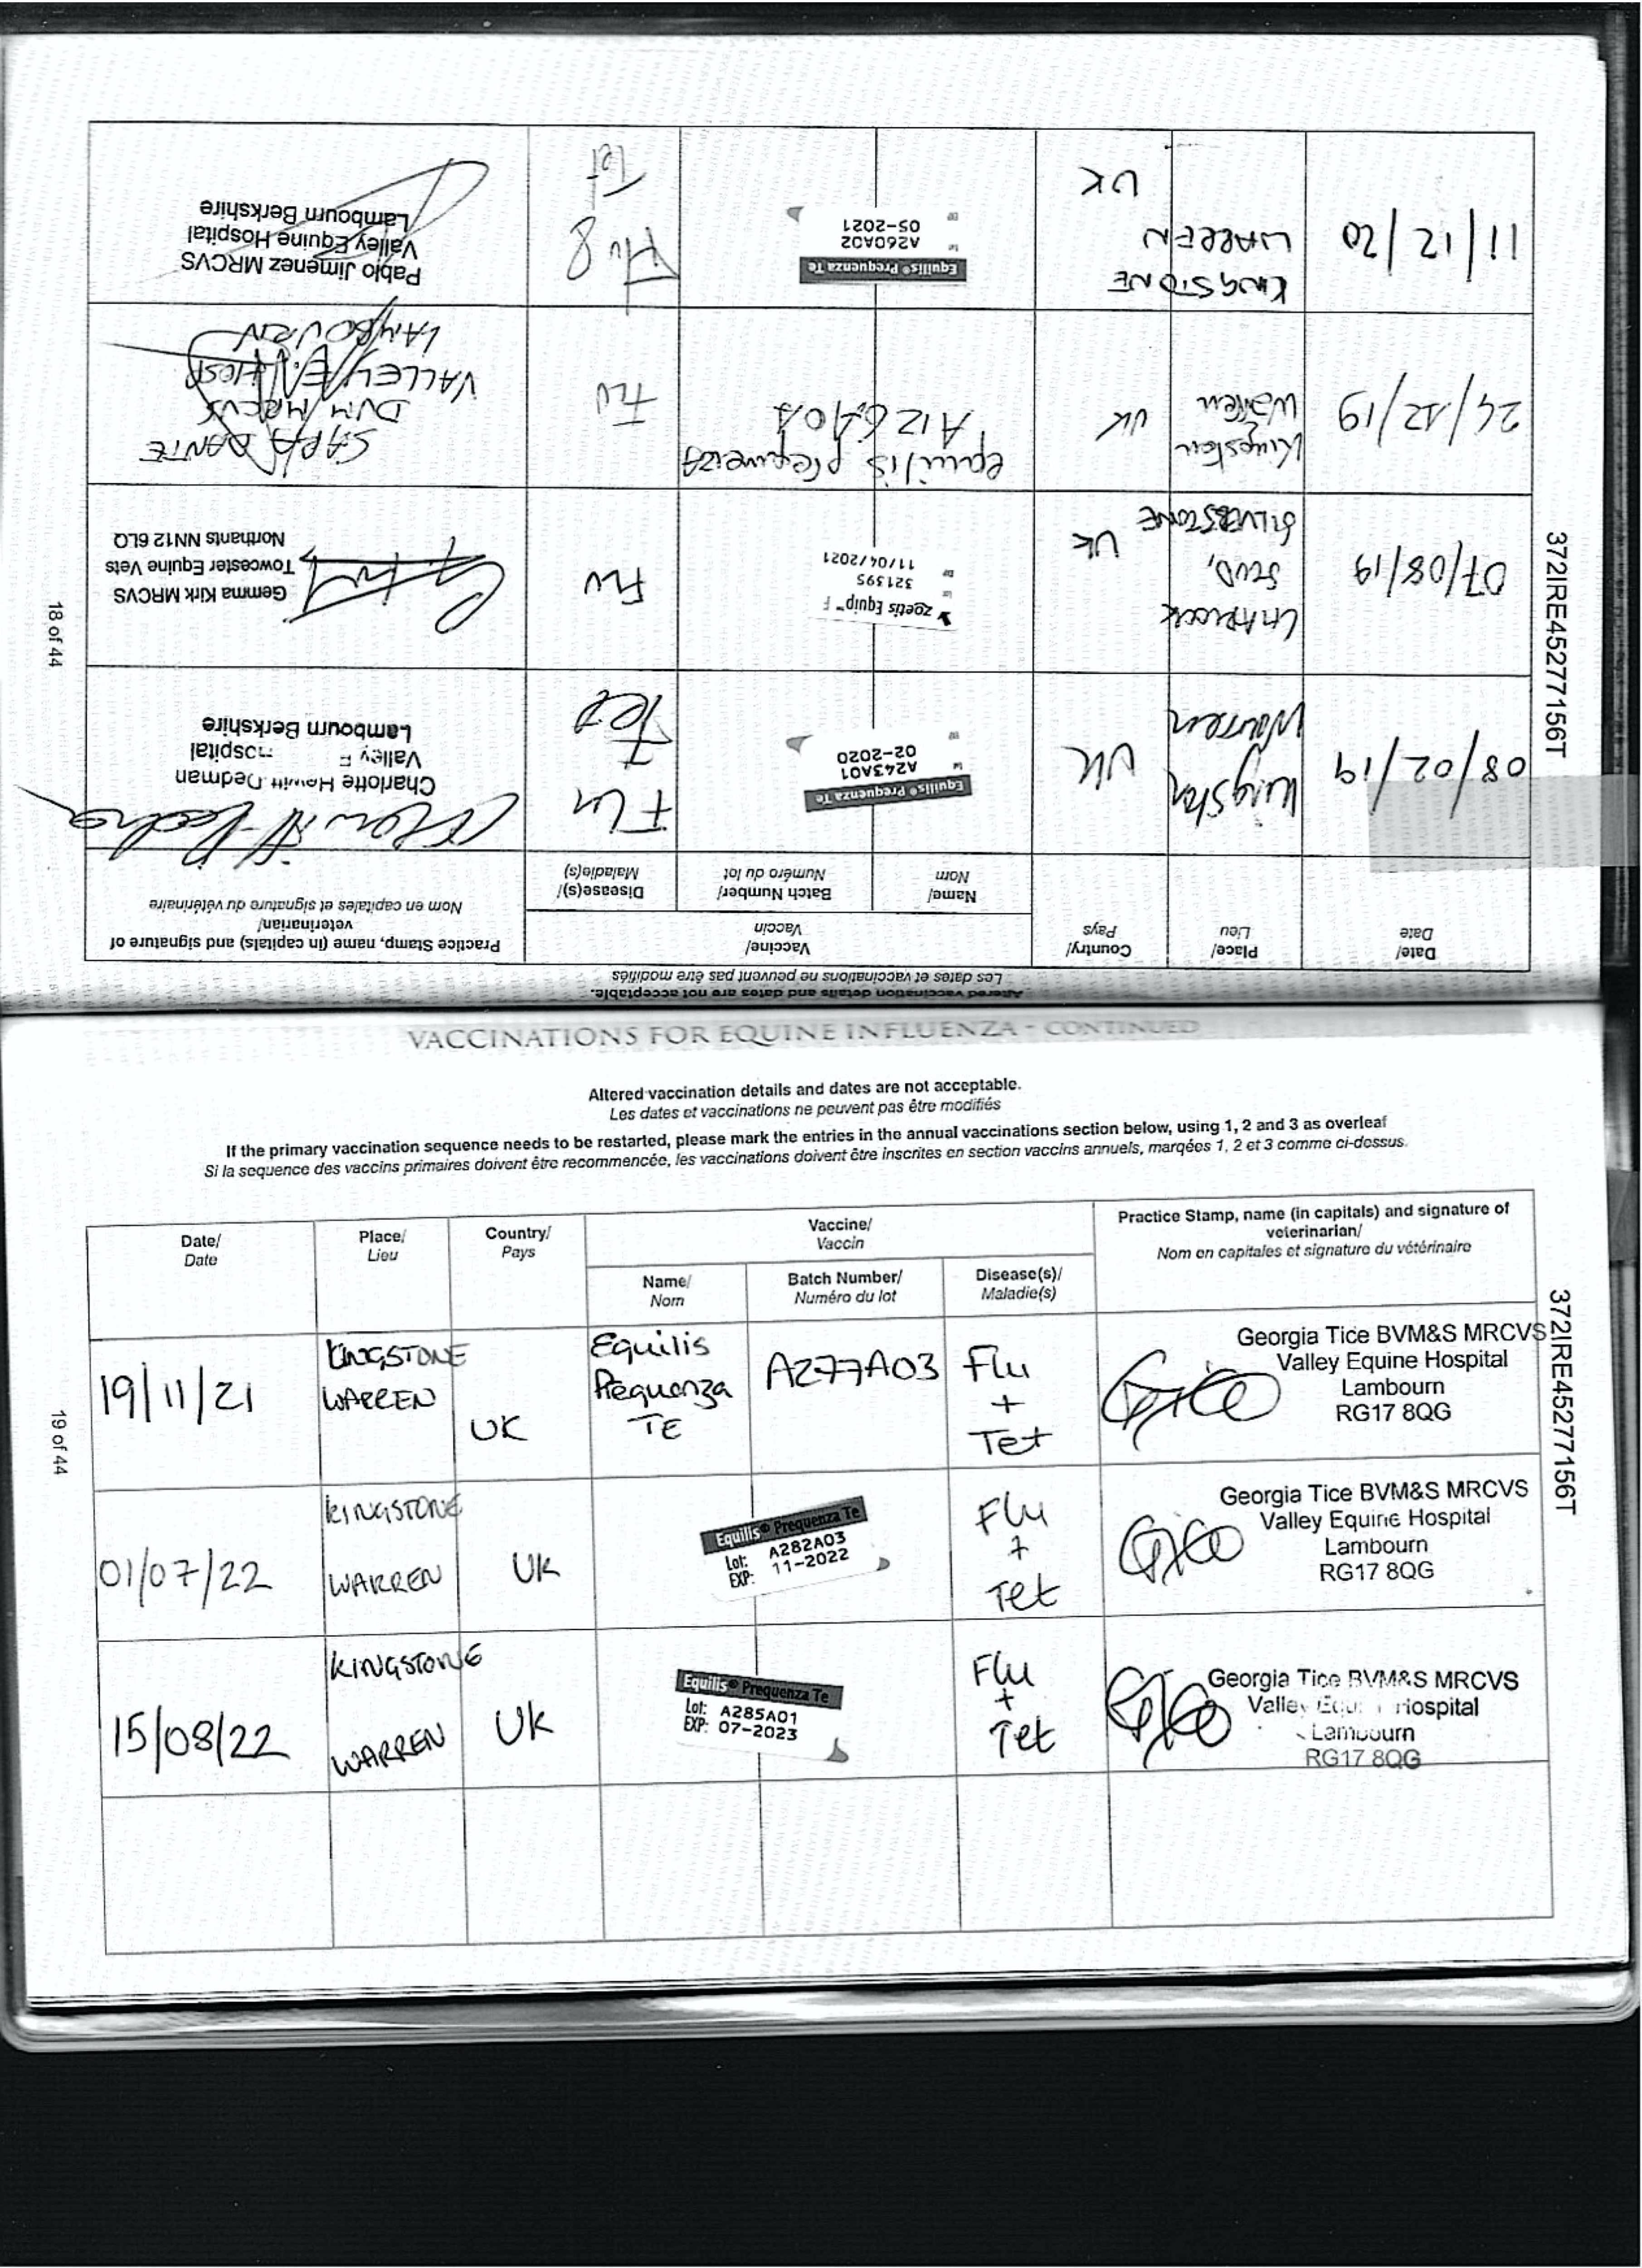 Altered vaccination details and dates are not acceptable.
Les dates et vaccinations ne peuvent pas être modifiés
Date/
Date
Place/
Lieu
Country/
Pays
Vaccine/
Vaccin
Name/
Nom
Batch Number/
Numéro du lot
Disease(s)/
Maladie(s)
Practice Stamp, name (in capitals) and signature of
veterinarian/
Nom en capitales et signature du vétérinaire
08/02/19
Kingston
Warren
UK
Equilis® Prequenza Te
Lot: A243A01
EXP: 02-2020
Flu
Tet
Charlotte Hewitt Dedman
Valley Hospital
Lambourn Berkshire
07/08/19
STUD,
SILVERSTONE
UK
zoetis Equip™ F
321395
11/04/2021
FLU
Gemma Kirk MRCVS
Towcester Equine Vets
Northants NN12 6LQ
24/12/19
Kingston
Warren
UK
equilis prequenza
A126A01
FLU
SARA DANTE
DVM MRCVS
VALLEY E. HOSP
LAMBOURN
11/12/20
KINGSTONE
WARREN
UK
Equilis® Prequenza Te
Lot A260A02
EXP 05-2021
Flu &
Tet
Pablo Jimenez MRCVS
Valley Equine Hospital
Lambourn Berkshire
372IRE45277156T
18 of 44
VACCINATIONS FOR EQUINE INFLUENZA - CONTINUED
Altered vaccination details and dates are not acceptable.
Les dates et vaccinations ne peuvent pas être modifiés
If the primary vaccination sequence needs to be restarted, please mark the entries in the annual vaccinations section below, using 1, 2 and 3 as overleaf
Si la sequence des vaccins primaires doivent être recommencée, les vaccinations doivent être inscrites en section vaccins annuels, marqées 1, 2 et 3 comme ci-dessus.
Date/
Date
Place/
Lieu
Country/
Pays
Vaccine/
Vaccin
Name/
Nom
Batch Number/
Numéro du lot
Disease(s)/
Maladie(s)
Practice Stamp, name (in capitals) and signature of
veterinarian/
Nom en capitales et signature du vétérinaire
19/11/21
KINGSTONE
WARREN
UK
Equilis
Prequenza
TE
A277A03
Flu
+
Tet
Georgia Tice BVM&S MRCVS
Valley Equine Hospital
Lambourn
RG17 8QG
01/07/22
KINGSTONE
WARREN
UK
Equilis® Prequenza Te
Lot: A282A03
EXP: 11-2022
Flu
+
Tet
Georgia Tice BVM&S MRCVS
Valley Equine Hospital
Lambourn
RG17 8QG
15/08/22
KINGSTONE
WARREN
UK
Equilis® Prequenza Te
Lot: A285A01
EXP: 07-2023
Flu
+
Tet
Georgia Tice BVM&S MRCVS
Valley Equine Hospital
Lambourn
RG17 8QG
372IRE45277156T
19 of 44